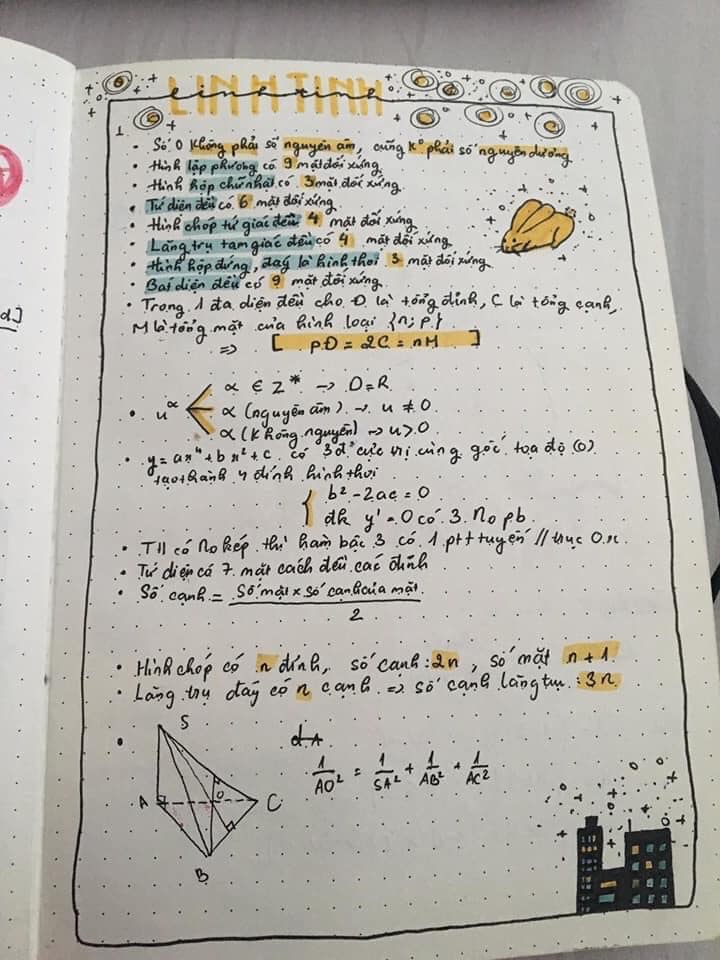 LINH TINH
linh tinh
1
• Số 0 không phải số nguyên âm, cũng k° phải số nguyên dương
• Hình lập phương có 9 mặt đối xứng
• Hình hộp chữ nhật có 3 mặt đối xứng.
• Tứ diện đều có 6 mặt đối xứng
• Hình chóp tứ giác đều 4 mặt đối xứng
• Lăng trụ tam giác đều có 4 mặt đối xứng
• Hình hộp đứng, đáy là hình thoi 3 mặt đối xứng
• Bát diện đều có 9 mặt đối xứng.
• Trong 1 đa diện đều cho Đ là tổng đỉnh, C là tổng cạnh,
M là tổng mặt của hình loại {n; p}
=> [ pĐ = 2C = nM ]
α ∈ Z* → D = R
• u^α α (nguyên âm) → u ≠ 0
α (không nguyên) → u > 0
• y = ax⁴ + bx² + c có 3 đ' cực trị cùng gốc tọa độ (0)
tạo thành 4 đỉnh hình thoi
{ b² - 2ac = 0
đk y' = 0 có 3 No pb
• TH có No kép thì hàm bậc 3 có 1 pt t tuyến // trục Ox
• Tứ diện có 7 mặt cách đều các đỉnh
• Số cạnh = Số mặt x số cạnh của mặt
2
• Hình chóp có n đỉnh, số cạnh : 2n, số mặt n + 1
• Lăng trụ đáy có n cạnh => số cạnh lăng trụ : 3n
• S
d A
1/AO² = 1/SA² + 1/AB² + 1/AC²
A O C
B
d.]